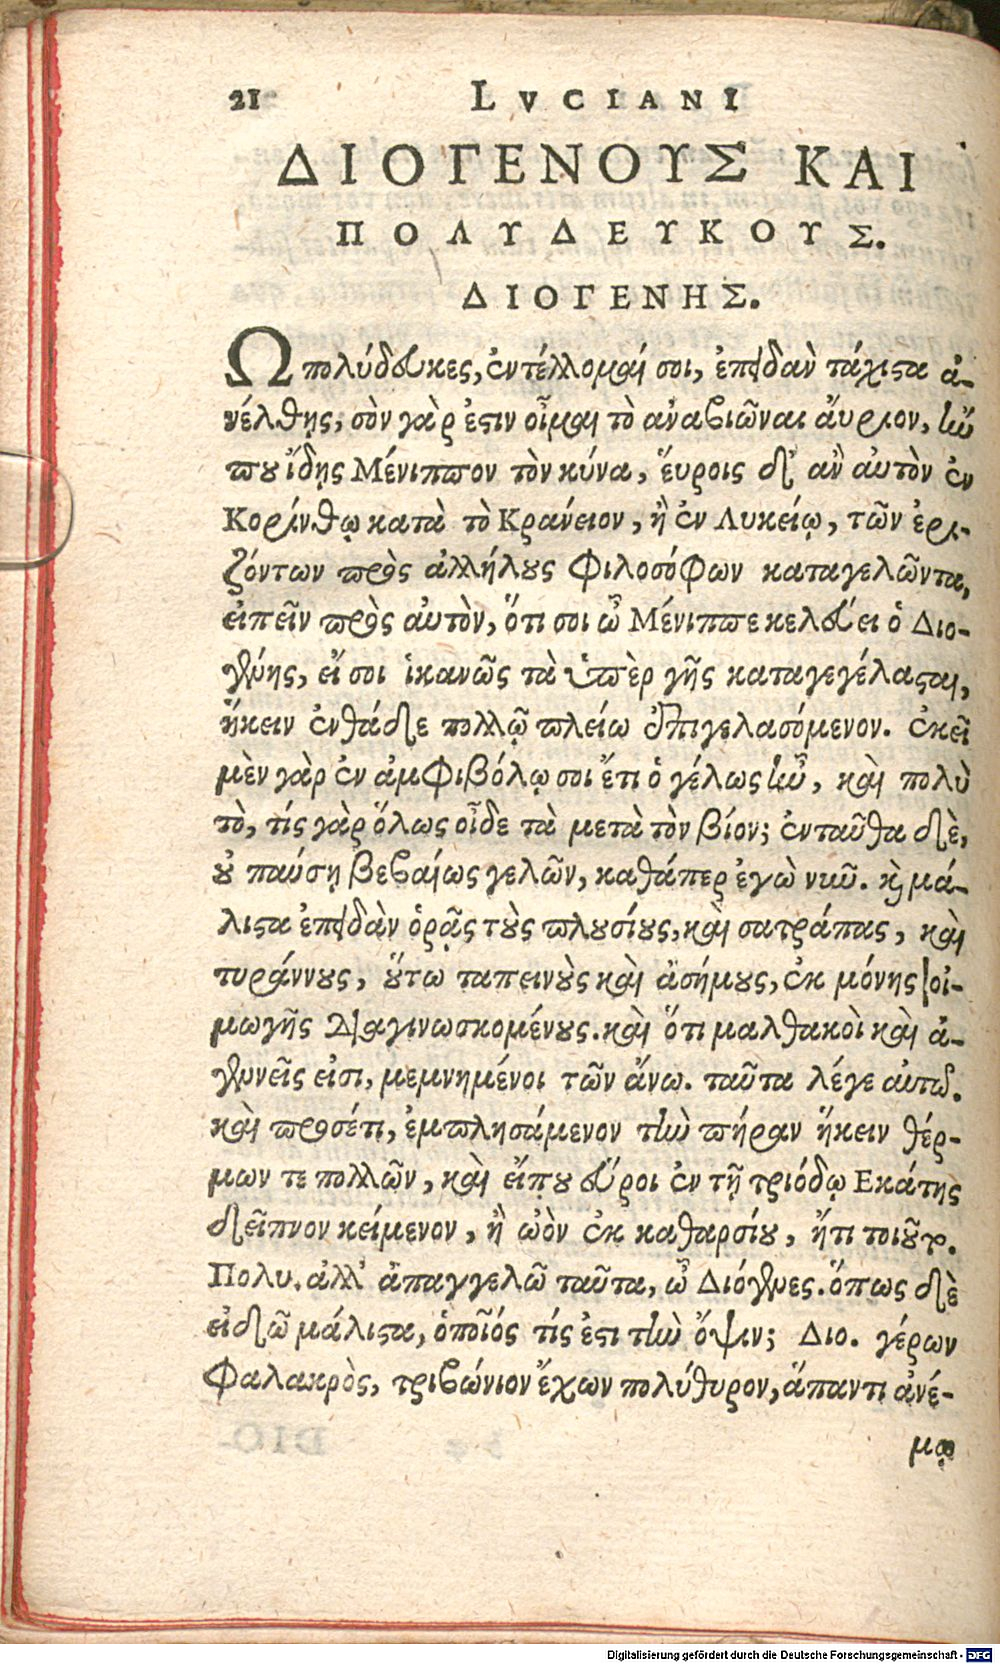 21 LVCIANI
ΔΙΟΓΕΝΟΥΣ ΚΑΙ
ΠΟΛΥΔΕΥΚΟΥΣ.
ΔΙΟΓΕΝΗΣ.
Ω πολύδευκες, ἐντέλλομαί σοι, ἐπειδὰν τάχιστα ἀ-
νέλθῃς, σὸν γάρ ἐστιν οἶμαι τὸ ἀναβιῶναι ἄυριον, ἤν
που ἴδῃς Μένιππον τὸν κύνα, ἕυροις δ' ἂν ἀυτὸν ἐν
Κορίνθῳ κατὰ τὸ Κράνειον, ἢ ἐν Λυκείῳ, τῶν ἐρι-
ζόντων πρὸς ἀλλήλους φιλοσόφων καταγελῶντα,
εἰπεῖν πρὸς ἀυτὸν, ὅτι σοι ὦ Μένιππε κελεύει ὁ Διο-
γένης, εἴ σοι ἱκανῶς τὰ ὑπὲρ γῆς καταγεγέλασται,
ἥκειν ἐνθάδε πολλῷ πλείω ἐπιγελασόμενον. ἐκεῖ
μὲν γὰρ ἐν ἀμφιβόλῳ σοι ἔτι ὁ γέλως ἦν, καὶ πολὺ
τὸ, τίς γὰρ ὅλως οἶδε τὰ μετὰ τὸν βίον; ἐνταῦθα δὲ,
ὀυ παύσῃ βεβαίως γελῶν, καθάπερ ἐγὼ νῦν. καὶ μά-
λιστα ἐπειδὰν ὁρᾷς τοὺς πλουσίους, καὶ σατράπας, καὶ
τυράννους, ὅυτω ταπεινοὺς καὶ ἀσήμους, ἐκ μόνης οἰ-
μωγῆς διαγινωσκομένους. καὶ ὅτι μαλθακοὶ καὶ ἀ-
γενεῖς εἰσι, μεμνημένοι τῶν ἄνω. ταῦτα λέγε ἀυτῷ.
καὶ προσέτι, ἐμπλησάμενον τὴν πήραν ἥκειν θέρ-
μων τε πολλῶν, καὶ εἴ που εὕροι ἐν τῇ τριόδῳ Εκάτης
δεῖπνον κείμενον, ἢ ὠὸν ἐκ καθαρσίου, ἤ τι τοιοῦτο.
Πολυ. ἀλλ' ἀπαγγελῶ ταῦτα, ὦ Διόγενες. ὅπως δὲ
εἰδῶ μάλιστα, ὁποῖός τίς ἐστι τὴν ὄψιν; Διο. γέρων
Φαλακρὸς, τριβώνιον ἔχων πολύθυρον, ἅπαντι ἀνέ-
μῳ
Digitalisierung gefördert durch die Deutsche Forschungsgemeinschaft - DFG